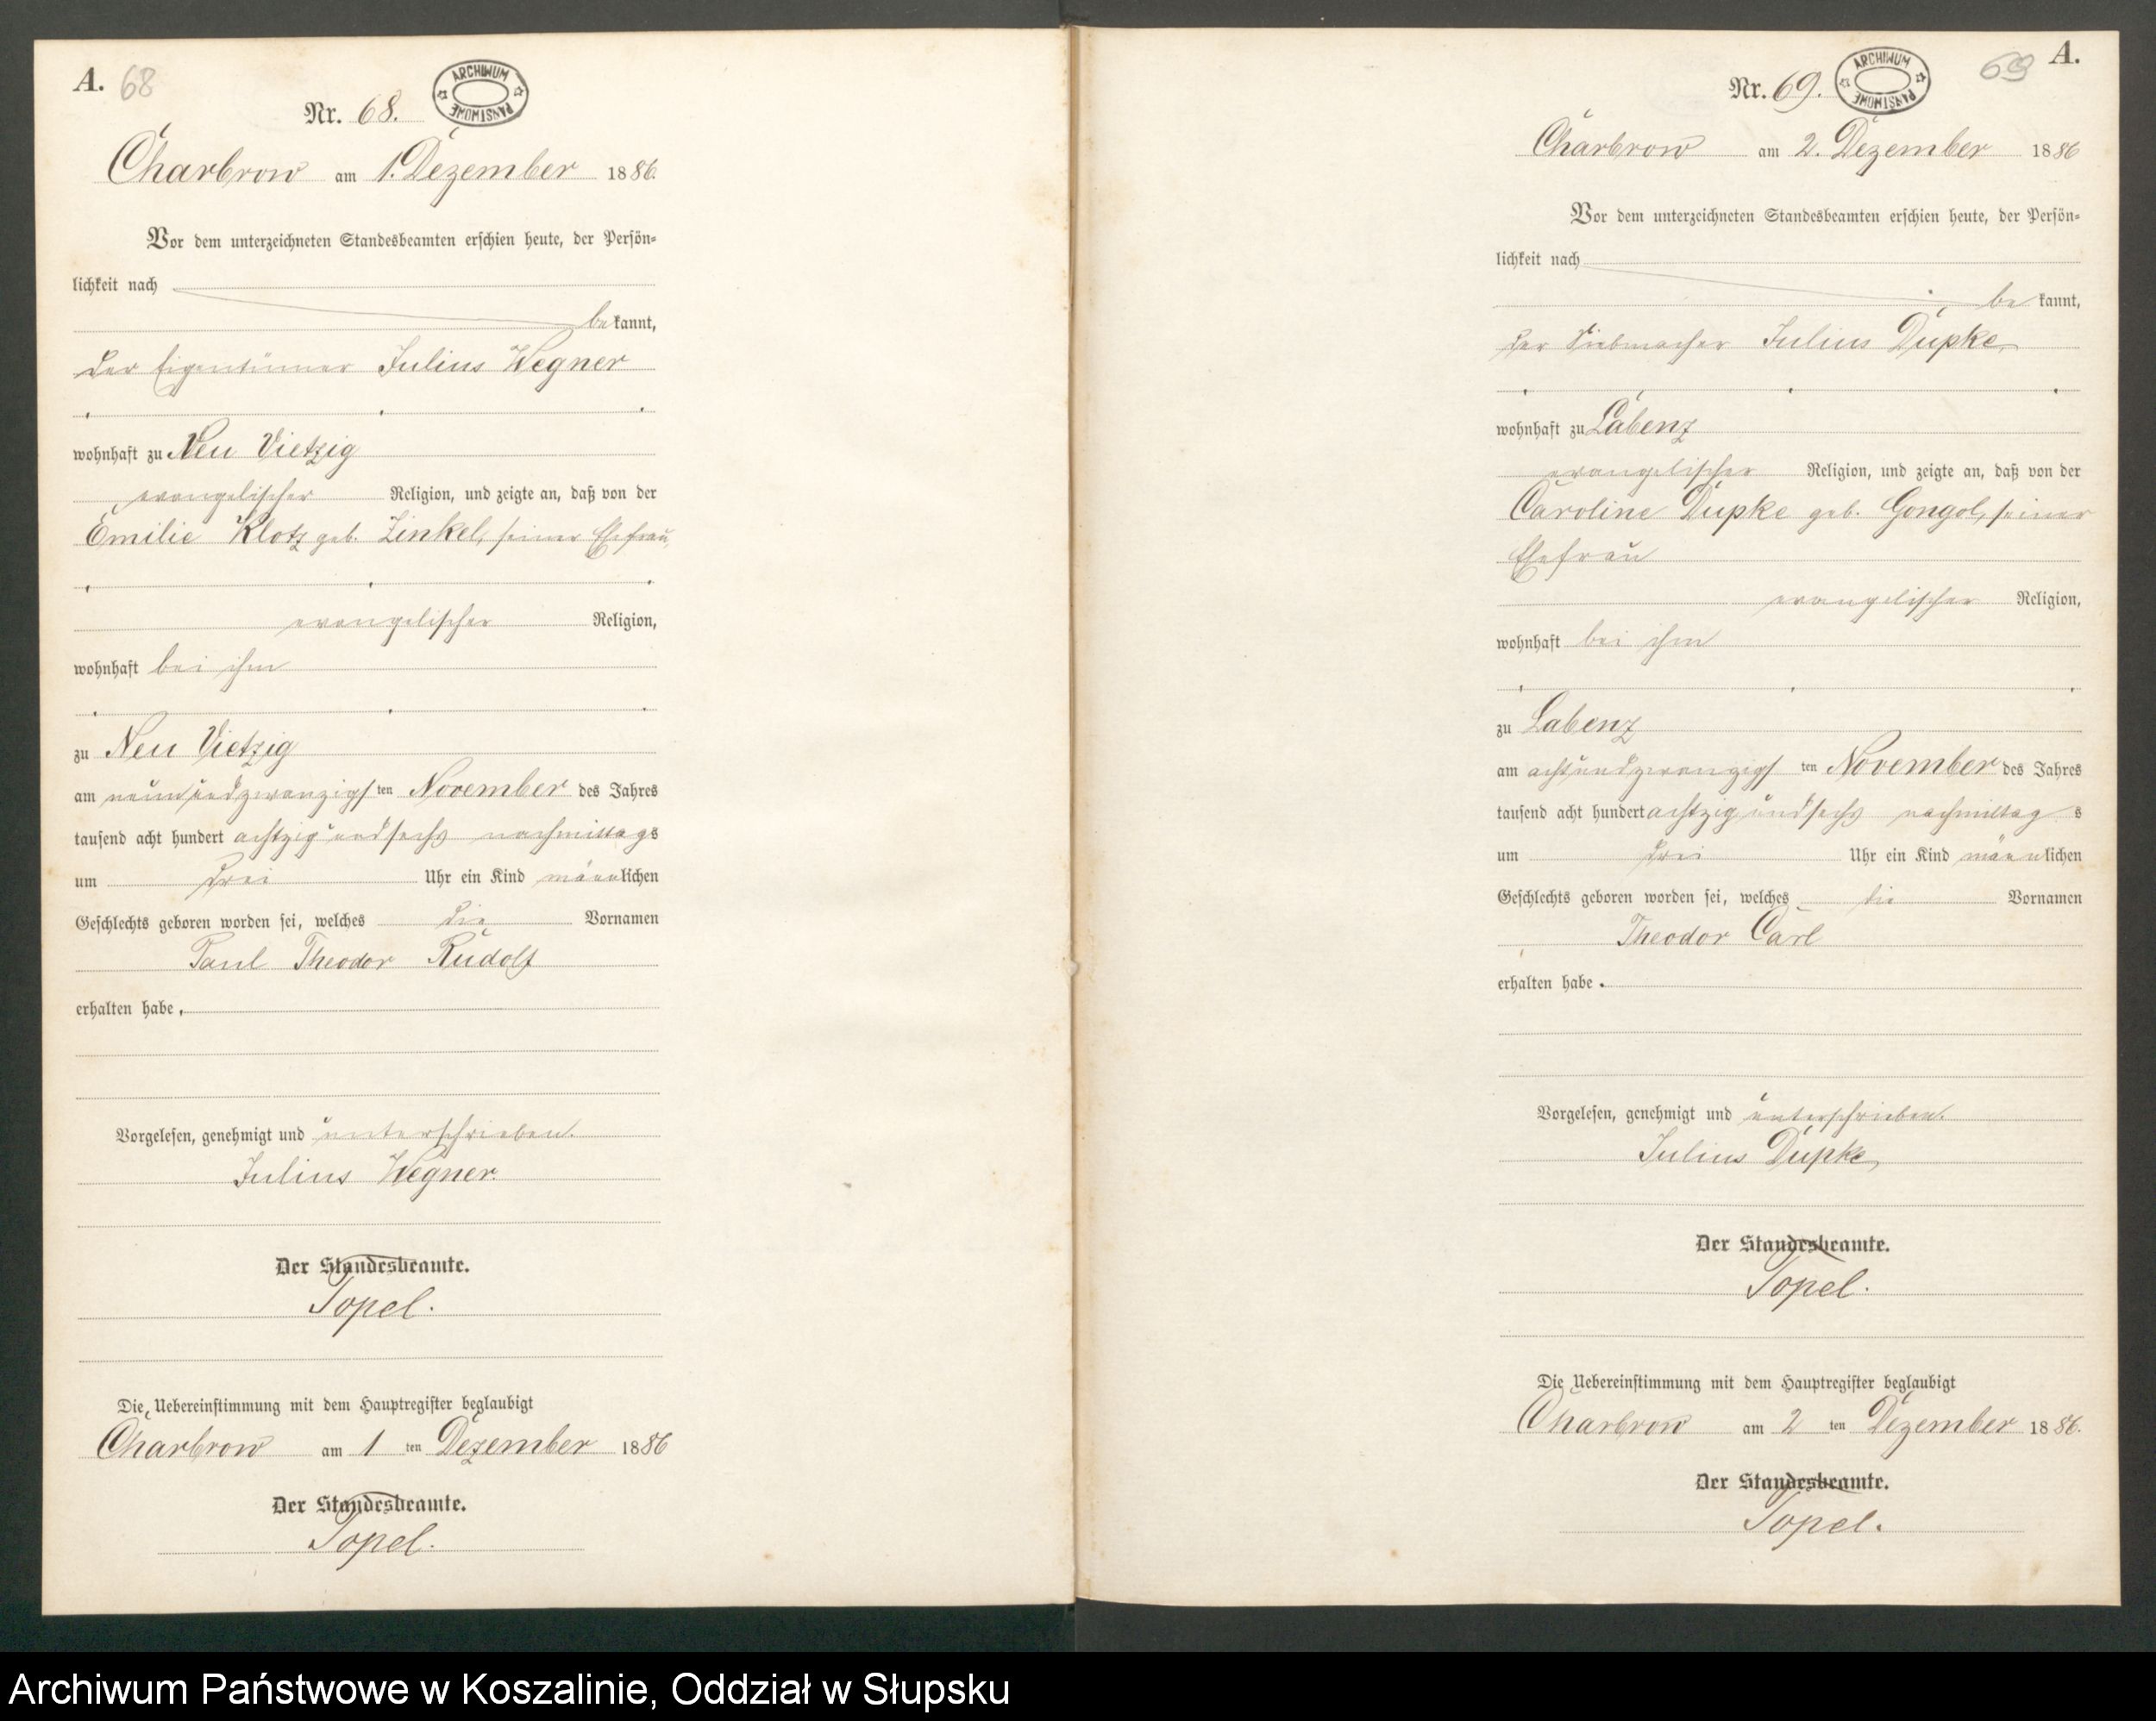 A. 68
ARCHIWUM PAŃSTWOWE
Nr. 68.
Charbrow am 1. Dezember 1886.
Vor dem unterzeichneten Standesbeamten erschien heute, der Persön=
lichkeit nach
bekannt,
der Eigentümer Julius Wegner
wohnhaft zu Neu Vietzig
evangelischer Religion, und zeigte an, daß von der
Emilie Klotz geb. Zinkel, seiner Ehefrau,
evangelischer Religion,
wohnhaft bei ihm
zu Neu Vietzig
am neunundzwanzigsten November des Jahres
tausend acht hundert achtzig und sechs nachmittags
um drei Uhr ein Kind männlichen
Geschlechts geboren worden sei, welches die Vornamen
Paul Theodor Rudolf
erhalten habe.
Vorgelesen, genehmigt und unterschrieben.
Julius Wegner.
Der Standesbeamte.
Topel.
Die Uebereinstimmung mit dem Hauptregister beglaubigt
Charbrow am 1 ten Dezember 1886
Der Standesbeamte.
Topel.
69 A.
ARCHIWUM PAŃSTWOWE
Nr. 69.
Charbrow am 2. Dezember 1886
Vor dem unterzeichneten Standesbeamten erschien heute, der Persön=
lichkeit nach
bekannt,
der Siebmacher Julius Dupke
wohnhaft zu Labenz
evangelischer Religion, und zeigte an, daß von der
Caroline Dupke geb. Gongol, seiner
Ehefrau
evangelischer Religion,
wohnhaft bei ihm
zu Labenz
am achtundzwanzigsten November des Jahres
tausend acht hundert achtzig und sechs nachmittags
um drei Uhr ein Kind männlichen
Geschlechts geboren worden sei, welches die Vornamen
Theodor Carl
erhalten habe.
Vorgelesen, genehmigt und unterschrieben.
Julius Dupke
Der Standesbeamte.
Topel.
Die Uebereinstimmung mit dem Hauptregister beglaubigt
Charbrow am 2 ten Dezember 1886.
Der Standesbeamte.
Topel.
Archiwum Państwowe w Koszalinie, Oddział w Słupsku